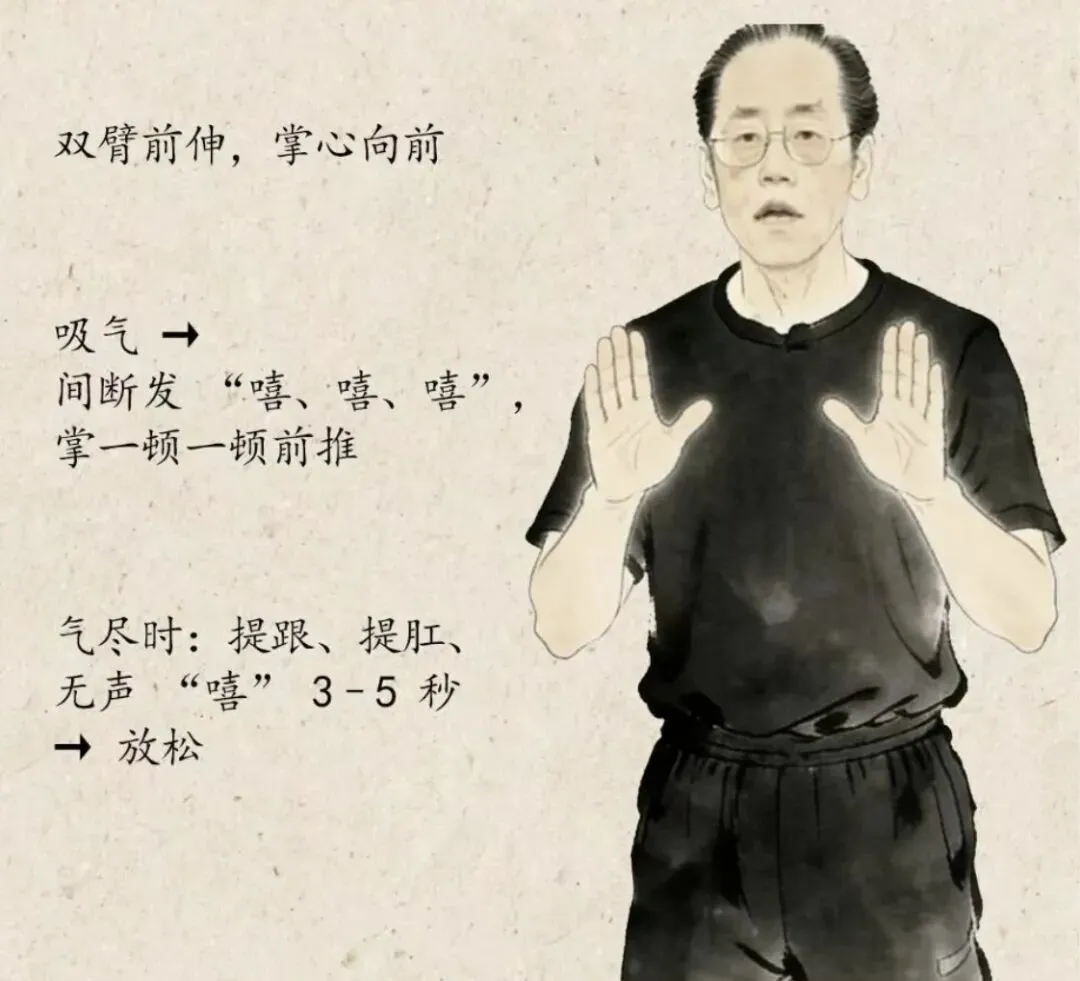 双臂前伸，掌心向前
吸气 →
间断发 “嘻、嘻、嘻”，
掌一顿一顿前推
气尽时：提跟、提肛、
无声 “嘻” 3-5 秒
→ 放松